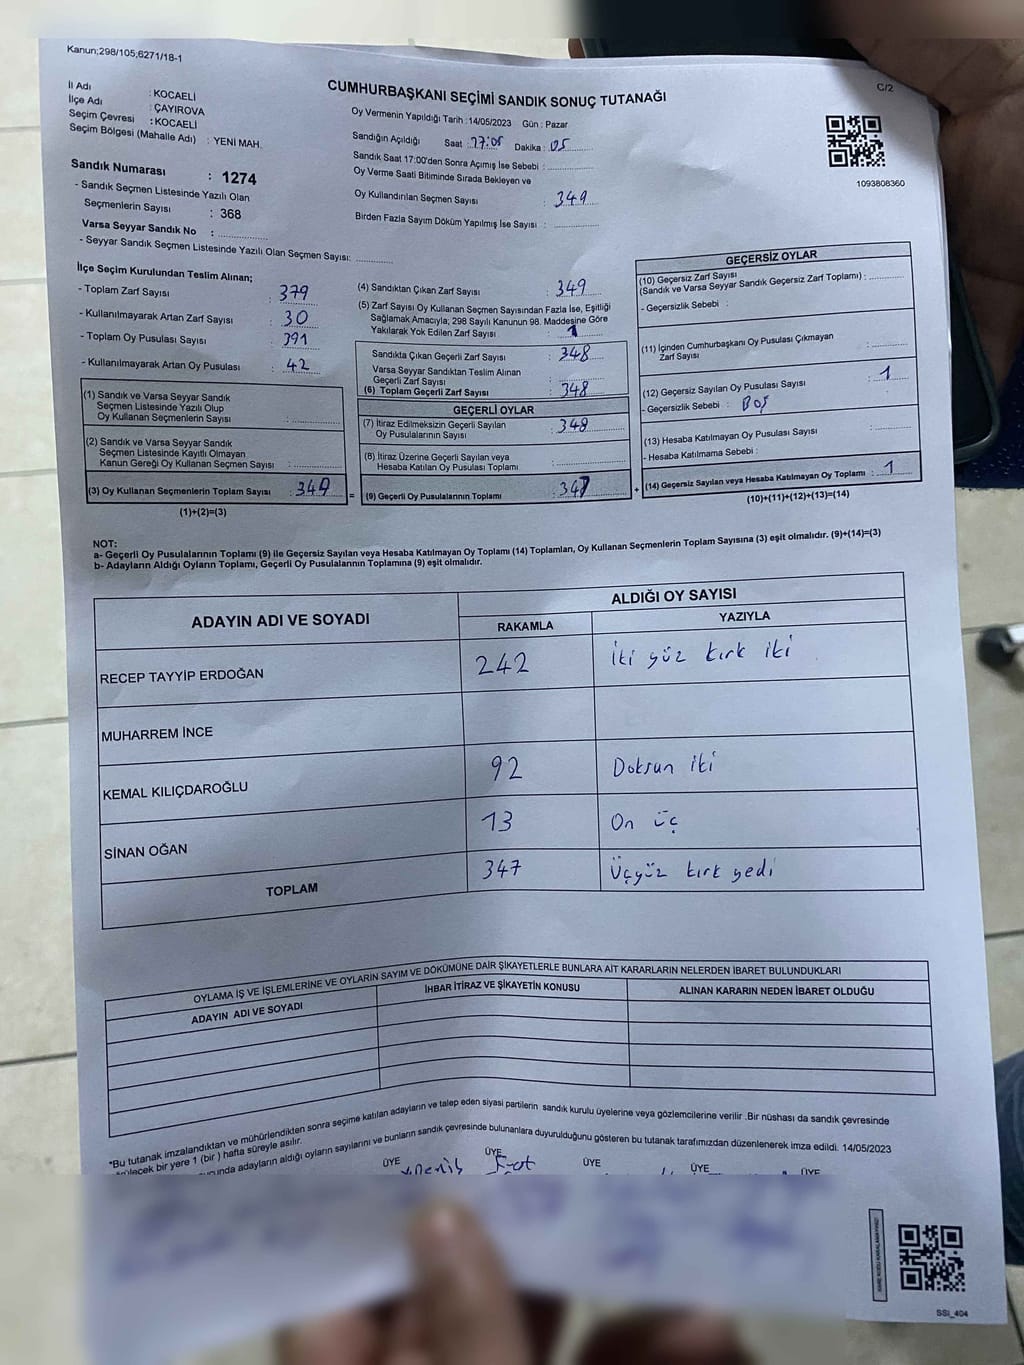 Kanun;298/105;6271/18-1
C/2
CUMHURBAŞKANI SEÇİMİ SANDIK SONUÇ TUTANAĞI
İl Adı : KOCAELİ
İlçe Adı : ÇAYIROVA
Seçim Çevresi : KOCAELİ
Seçim Bölgesi (Mahalle Adı) : YENİ MAH.
Sandık Numarası : 1274
- Sandık Seçmen Listesinde Yazılı Olan
Seçmenlerin Sayısı : 368
Varsa Seyyar Sandık No :
- Seyyar Sandık Seçmen Listesinde Yazılı Olan Seçmen Sayısı:
Oy Vermenin Yapıldığı Tarih :14/05/2023 Gün : Pazar
Sandığın Açıldığı Saat : 17:05 Dakika : 05
Sandık Saat 17:00'den Sonra Açımış İse Sebebi :
Oy Verme Saati Bitiminde Sırada Bekleyen ve
Oy Kullandırılan Seçmen Sayısı : 349
Birden Fazla Sayım Döküm Yapılmış İse Sayısı :
1093808360
İlçe Seçim Kurulundan Teslim Alınan;
- Toplam Zarf Sayısı : 379
- Kullanılmayarak Artan Zarf Sayısı : 30
- Toplam Oy Pusulası Sayısı : 391
- Kullanılmayarak Artan Oy Pusulası : 42
(1) Sandık ve Varsa Seyyar Sandık
Seçmen Listesinde Yazılı Olup
Oy Kullanan Seçmenlerin Sayısı :
(2) Sandık ve Varsa Seyyar Sandık
Seçmen Listesinde Kayıtlı Olmayan
Kanun Gereği Oy Kullanan Seçmen Sayısı :
(3) Oy Kullanan Seçmenlerin Toplam Sayısı : 349 =
(1)+(2)=(3)
(4) Sandıktan Çıkan Zarf Sayısı : 349
(5) Zarf Sayısı Oy Kullanan Seçmen Sayısından Fazla İse, Eşitliği
Sağlamak Amacıyla; 298 Sayılı Kanunun 98. Maddesine Göre
Yakılarak Yok Edilen Zarf Sayısı : 1
Sandıkta Çıkan Geçerli Zarf Sayısı : 348
Varsa Seyyar Sandıktan Teslim Alınan
Geçerli Zarf Sayısı :
(6) Toplam Geçerli Zarf Sayısı : 348
GEÇERLİ OYLAR
(7) İtiraz Edilmeksizin Geçerli Sayılan
Oy Pusulalarının Sayısı : 348
(8) İtiraz Üzerine Geçerli Sayılan veya
Hesaba Katılan Oy Pusulası Toplamı :
(9) Geçerli Oy Pusulalarının Toplamı : 347 +
GEÇERSİZ OYLAR
(10) Geçersiz Zarf Sayısı
(Sandık ve Varsa Seyyar Sandık Geçersiz Zarf Toplamı) :
- Geçersizlik Sebebi :
(11) İçinden Cumhurbaşkanı Oy Pusulası Çıkmayan
Zarf Sayısı :
(12) Geçersiz Sayılan Oy Pusulası Sayısı : 1
- Geçersizlik Sebebi : Boş
(13) Hesaba Katılmayan Oy Pusulası Sayısı :
- Hesaba Katılmama Sebebi :
(14) Geçersiz Sayılan veya Hesaba Katılmayan Oy Toplamı : 1
(10)+(11)+(12)+(13)=(14)
NOT:
a- Geçerli Oy Pusulalarının Toplamı (9) ile Geçersiz Sayılan veya Hesaba Katılmayan Oy Toplamı (14) Toplamları, Oy Kullanan Seçmenlerin Toplam Sayısına (3) eşit olmalıdır. (9)+(14)=(3)
b- Adayların Aldığı Oyların Toplamı, Geçerli Oy Pusulalarının Toplamına (9) eşit olmalıdır.
ADAYIN ADI VE SOYADI
ALDIĞI OY SAYISI
RAKAMLA YAZIYLA
RECEP TAYYİP ERDOĞAN 242 İki yüz kırk iki
MUHARREM İNCE
KEMAL KILIÇDAROĞLU 92 Doksan iki
SİNAN OĞAN 13 On üç
TOPLAM 347 Üçyüz kırk yedi
OYLAMA İŞ VE İŞLEMLERİNE VE OYLARIN SAYIM VE DÖKÜMÜNE DAİR ŞİKAYETLERLE BUNLARA AİT KARARLARIN NELERDEN İBARET BULUNDUKLARI
ADAYIN ADI VE SOYADI İHBAR İTİRAZ VE ŞİKAYETİN KONUSU ALINAN KARARIN NEDEN İBARET OLDUĞU
*Bu tutanak imzalandıktan ve mühürlendikten sonra seçime katılan adayların ve talep eden siyasi partilerin sandık kurulu üyelerine veya gözlemcilerine verilir .Bir nüshası da sandık çevresinde
bir yere 1 (bir ) hafta süreyle asılır.
adayların aldığı oyların sayılarını ve bunların sandık çevresinde bulunanlara duyurulduğunu gösteren bu tutanak tarafımızdan düzenlenerek imza edildi. 14/05/2023
ÜYE ÜYE ÜYE ÜYE ÜYE
SSİ_404